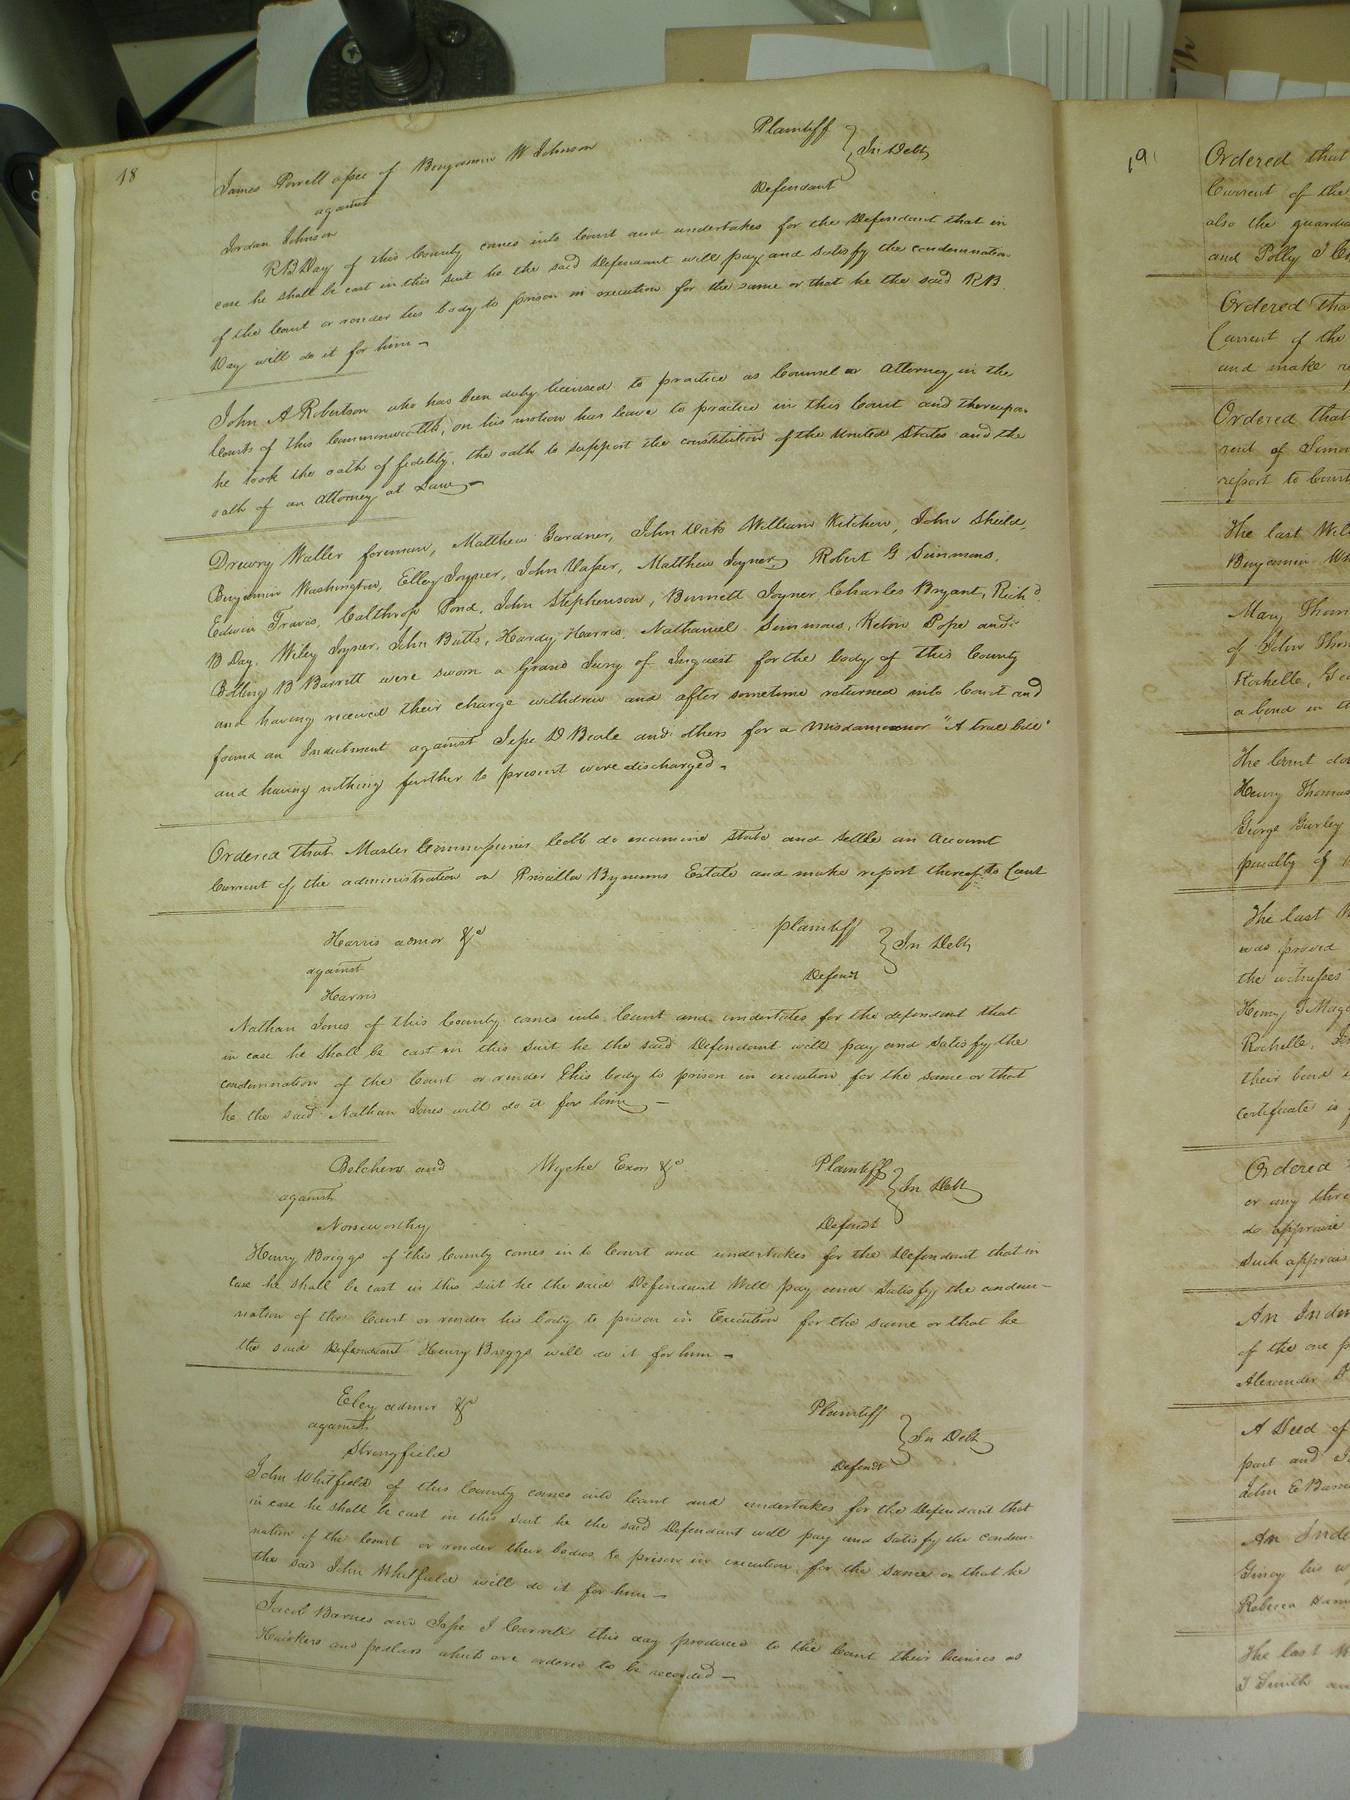 18
James Powell assee of Benjamin W Johnson Plaintiff
against } In Debt
Jordan Johnson Defendant
RB Day of this County comes into Court and undertakes for the Defendant that in
case he shall be cast in this suit he the said Defendant will pay and satisfy the condemnation
of the Court or render his body to prison in execution for the same or that he the said RB
Day will do it for him –
John A Robertson who has been duly licensed to practice as Counsel or Attorney in the
Courts of this Commonwealth, on his motion has leave to practice in this Court and thereupon
he took the oath of fidelity, the oath to support the constitution of the United States and the
oath of an Attorney at Law –
Drewry Waller foreman, Matthew Gardner, John Vick William Kitchen, John Shield,
Benjamin Washington, Elley Joyner, John Vasser, Matthew Joyner, Robert G Simmons,
Edwin Travis, Calthrop Pond, John Stephenson, Burnett Joyner Charles Bryant, Richd
B Day, Wiley Joyner, John Butts, Hardy Harris, Nathaniel Simmons, Pope and
Bolling B Barrett were sworn a Grand Jury of Inquest for the body of this County
and having received their charge withdrew and after sometime returned into Court and
found an Indictment against Jesse D Beale and others for a Misdameanor "A true bill"
and having nothing further to present were discharged –
Ordered that Master Commissioner Cobb do examine state and settle an account
Current of the administration on Priscilla Bynums Estate and make report thereof to Court
Harris admor &c plaintiff
against } In Debt
Harris Defendt
Nathan Jones of this County comes into Court and undertakes for the defendant that
in case he shall be cast in this suit he the said Defendant will pay and satisfy the
condemnation of the Court or render his body to prison in execution for the same or that
he the said Nathan Jones will do it for him –
Belcher and Wyche Exors &c Plaintiffs
against } In Debt
Norsworthy Defendt
Henry Briggs of this County comes in to Court and undertakes for the Defendant that in
case he shall be cast in this suit he the said Defendant Will pay and Satisfy the condem-
nation of the Court or render his body to prison in Execution for the same or that he
the said Defendant Henry Briggs will do it for him –
Eley admor &c Plaintiff
against } In Debt
Stringfield Defendt
John Whitfield of this County comes into Court and undertakes for the Defendant that
in case he shall be cast in this suit he the said Defendant will pay and satisfy the condem-
nation of the Court or render their bodies to prison in execution for the same or that he
the said John Whitfield will do it for him –
Jacob Barnes and Jesse J Carrell this day produced to the Court their licenses as
Hawkers and pedlars which are ordered to be recorded –
19
Ordered that
Current of the
also the guardia
and Polly J
Ordered tha
Current of the
and make re
Ordered that
rent of Simo
report to Court
The last Wil
Benjamin Wh
Mary Thom
of John Thom
Rochelle, Geo
a bond in th
The Court do
Henry Thomas
George Gurley
penalty of
The last W
was proved
the witnesses
Henry J
Rochelle,
their bond
certificate is
Ordered
or any thre
do appraise
such apprais
An Inden
of the one p
Alexander
A Deed of
part and
John E Barn
An Inde
Giney his w
Rebecca Barn
The last W
J Smith an